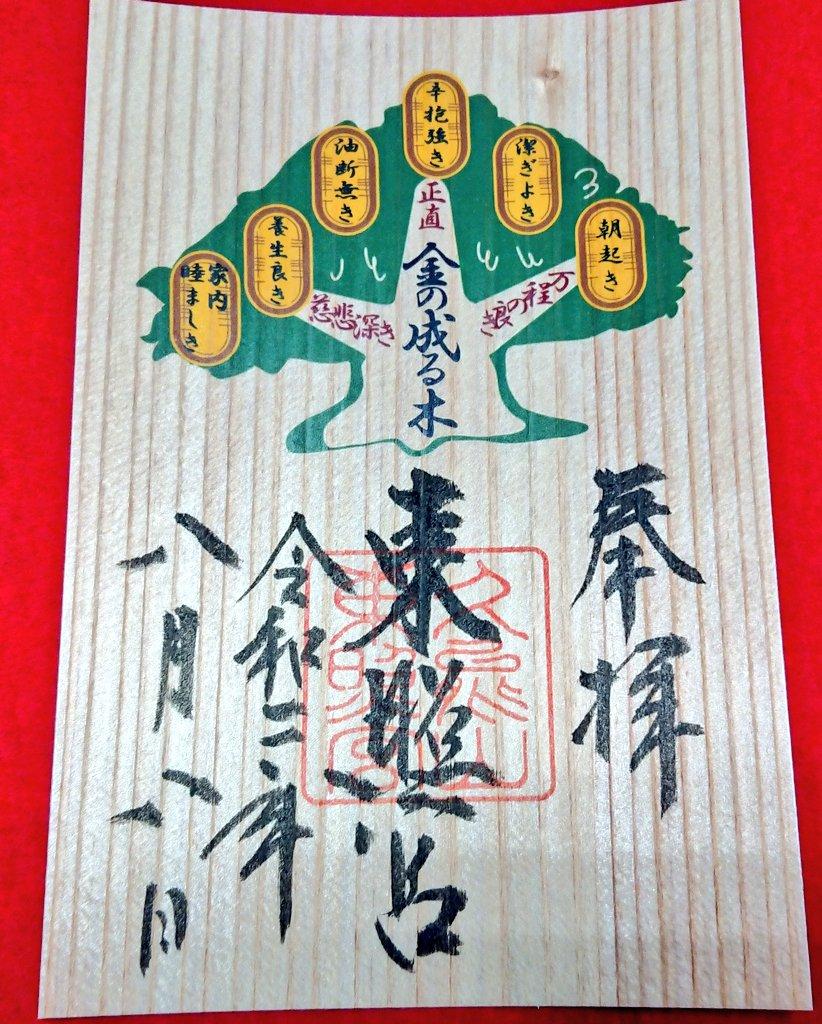 朝起き
潔ぎよき
辛抱強き
油断無き
養生良き
家内
睦ましき
万程の良き
正直
慈悲深き
金の成る木
奉拝
東照宮
令和二年
八月八日